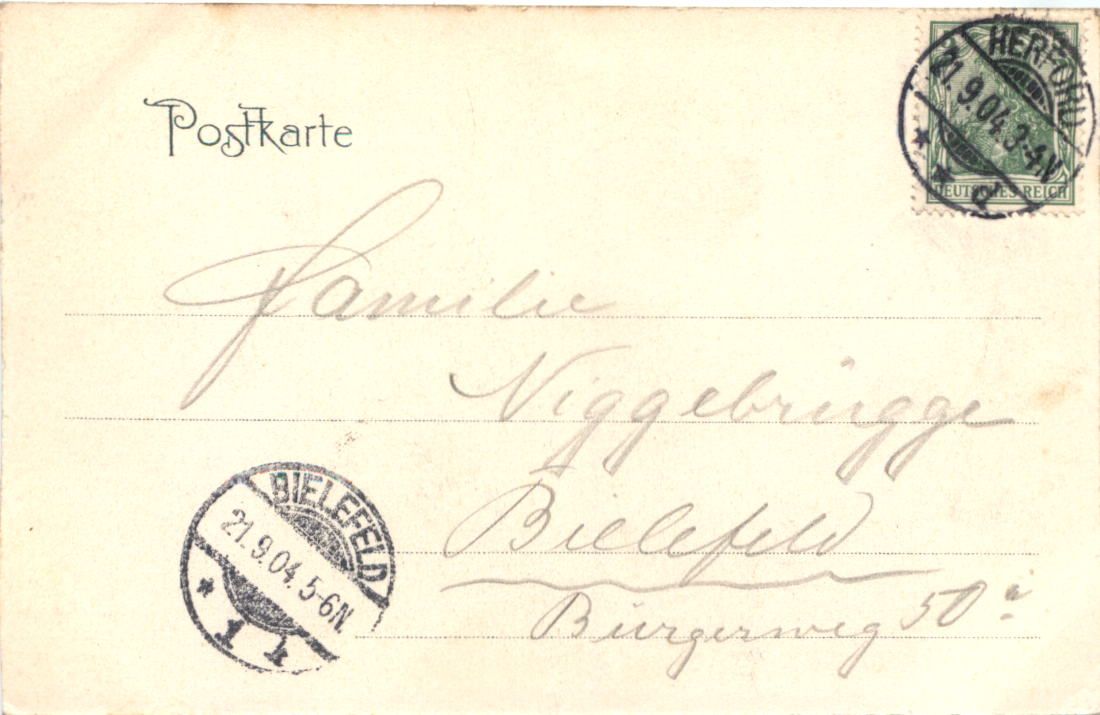 Postkarte
HERFORD
21.9.04.3-4.N
* * d
DEUTSCHES REICH
Familie
Niggebrügge
Bielefeld
Bürgerweg 50a
BIELEFELD
21.9.04.5-6N.
* 1 1